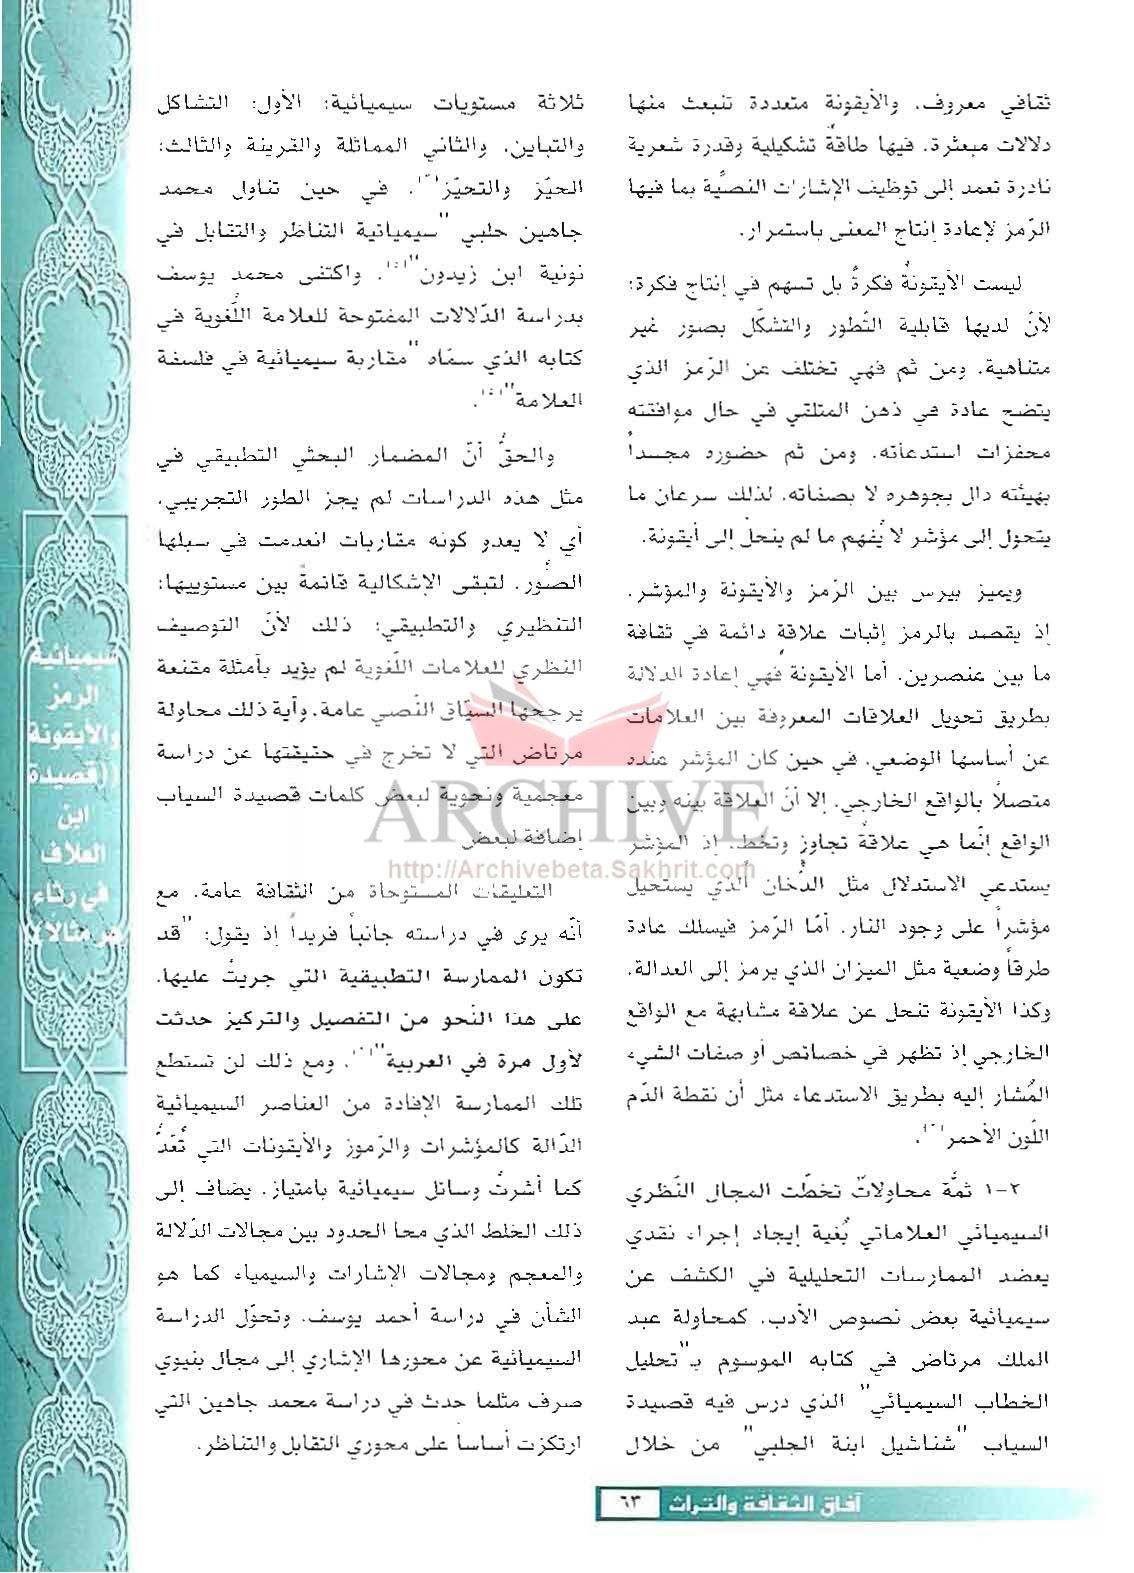 ثقافي معروف. والأيقونة متعددة تنبعث منها
دلالات مبعثرة. فيها طاقة تشكيلية وقدرة شعرية
نادرة تعمد إلى توظيف الإشارات النصيَّة بما فيها
الرّمز لإعادة إنتاج المعنى باستمرار.
ليست الأيقونةُ فكرةً بل تسهم في إنتاج فكرة؛
لأنّ لديها قابلية التّطور والتشكّل بصور غير
متناهية. ومن ثم فهي تختلف عن الرّمز الذي
يتضح عادة في ذهن المتلقي في حال موافقته
محفزات استدعائه. ومن ثم حضوره مجسداً
بهيئته دال بجوهره لا بصفاته. لذلك سرعان ما
يتحول إلى مؤشر لا يُفهم ما لم ينحل إلى أيقونة.
ويميز بيرس بين الرّمز والأيقونة والمؤشر.
إذ يقصد بالرمز إثبات علاقة دائمة في ثقافة
ما بين عنصرين. أما الأيقونة فهي إعادة الدلالة
بطريق تحويل العلاقات المعروفة بين العلامات
عن أساسها الوضعي. في حين كان المؤشر عنده
متصلاً بالواقع الخارجي. إلا أنّ العلاقة بينه وبين
الواقع إنّما هي علاقة تجاوز وتخطٍ. إذ المؤشر
يستدعي الاستدلال مثل الدُّخان الّذي يستحيل
مؤشراً على وجود النار. أمّا الرّمز فيسلك عادة
طرقاً وضعية مثل الميزان الذي يرمز إلى العدالة.
وكذا الأيقونة تنحل عن علاقة مشابهة مع الواقع
الخارجي إذ تظهر في خصائص أو صفات الشيء
المُشار إليه بطريق الاستدعاء مثل أن نقطة الدّم
اللّون الأحمر.
٢-١ ثمَّة محاولاتٌ تخطّت المجال النّظري
السيميائي العلاماتي بُغية إيجاد إجراء نقدي
يعضد الممارسات التحليلية في الكشف عن
سيميائية بعض نصوص الأدب. كمحاولة عبد
الملك مرتاض في كتابه الموسوم بـ"تحليل
الخطاب السيميائي" الذي درس فيه قصيدة
السياب "شناشيل ابنة الجلبي" من خلال
ثلاثة مستويات سيميائية: الأول: التشاكل
والتباين. والثاني المماثلة والقرينة والثالث:
الحيّز والتحيّز. في حين تناول محمد
جاهين حلبي "سيميائية التناظر والتقابل في
نونية ابن زيدون". واكتفى محمد يوسف
بدراسة الدّلالات المفتوحة للعلامة اللّغوية في
كتابه الذي سمّاه "مقاربة سيميائية في فلسفة
العلامة".
والحقُّ أنّ المضمار البحثي التطبيقي في
مثل هذه الدراسات لم يجز الطور التجريبي.
أي لا يعدو كونه مقاربات انعدمت في سبلها
الصُّور. لتبقى الإشكالية قائمةً بين مستوييها:
التنظيري والتطبيقي: ذلك لأنّ التوصيف
النظري للعلامات اللّغوية لم يؤيد بأمثلة مقنعة
يرجحها السيّاق النّصي عامة. وآية ذلك محاولة
مرتاض التي لا تخرج في حقيقتها عن دراسة
معجمية ونحوية لبعض كلمات قصيدة السياب
إضافة لبعض
التعليقات المستوحاة من الثقافة عامة. مع
أنّه يرى في دراسته جانباً فريداً إذ يقول: "قد
تكون الممارسة التطبيقية التي جريتُ عليها.
على هذا النّحو من التفصيل والتركيز حدثت
لأول مرة في العربية". ومع ذلك لن تستطع
تلك الممارسة الإفادة من العناصر السيميائية
الدّالة كالمؤشرات والرّموز والأيقونات التي تُعَدُّ
كما أشرتُ وسائل سيميائية بامتياز. يضاف إلى
ذلك الخلط الذي محا الحدود بين مجالات الدّلالة
والمعجم ومجالات الإشارات والسيمياء كما هو
الشأن في دراسة أحمد يوسف. وتحوّل الدراسة
السيميائية عن محورها الإشاري إلى مجال بنيوي
صرف مثلما حدث في دراسة محمد جاهين التي
ارتكزت أساسا على محوري التقابل والتناظر.
سيميائية
الرمز
والأيقونة
((قصيدة
ابن
العلاف
في رثاء
هر مثالاً))
ARCHIVE
http://Archivebeta.Sakhrit.com
آفاق الثقافة والتراث ٦٣